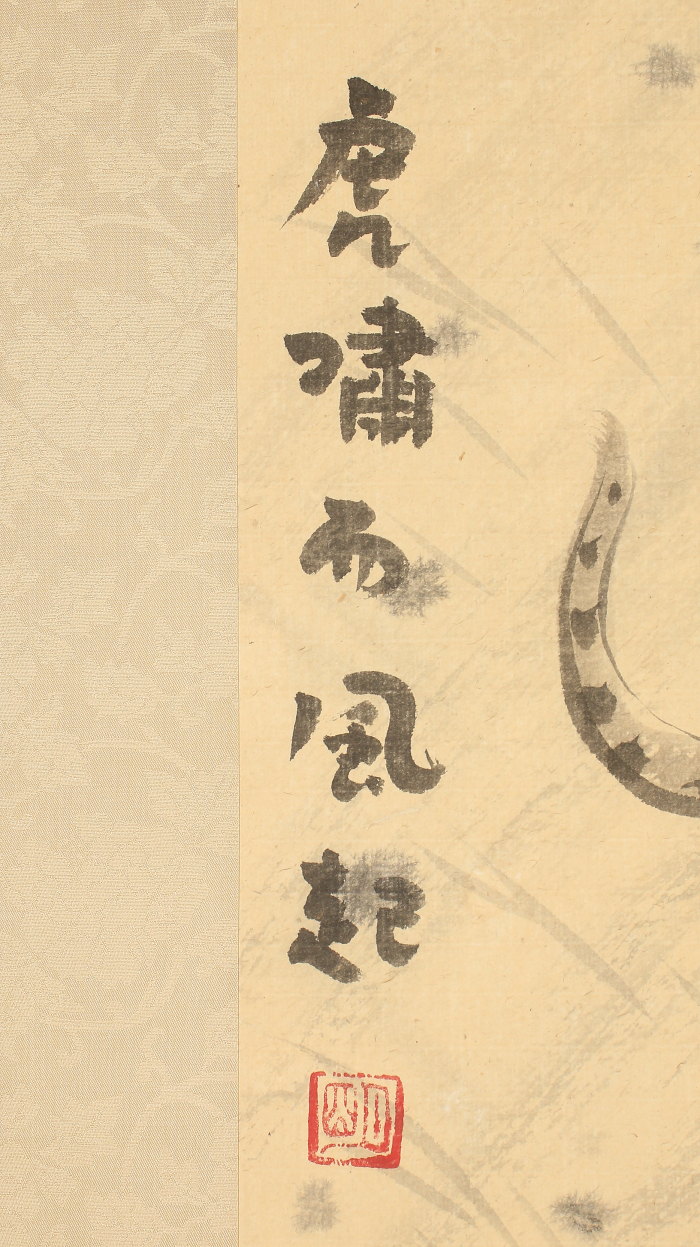 虎嘯而風起